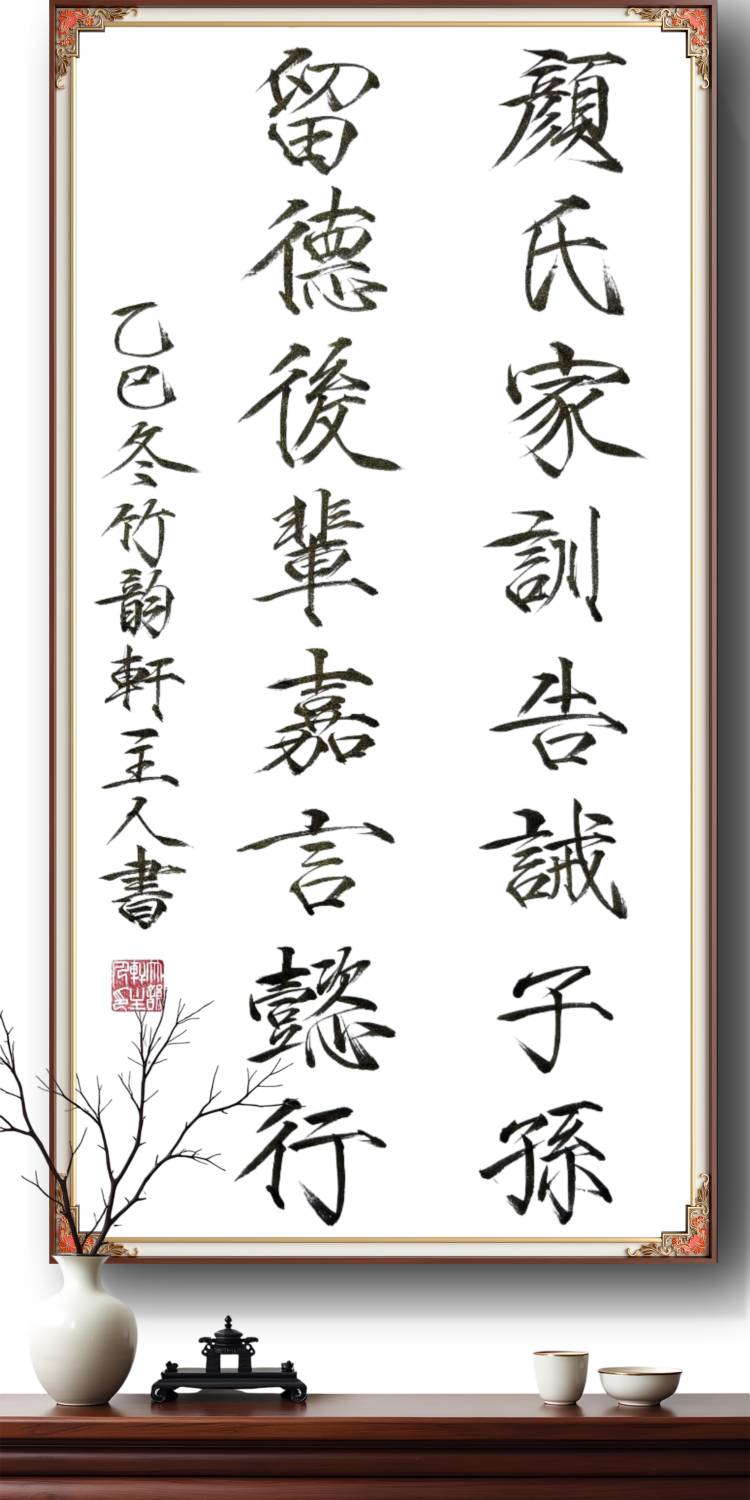 顔氏家訓告誡子孫
留德後輩嘉言懿行
乙巳冬竹韵軒主人書